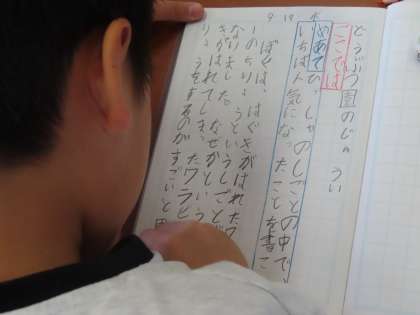 9 19 木
どうぶつ園のじゅうい
ここでは
めあて ひっしゃのしごとの中で、
いちばん気になったことを書こ
ぼくは、はぐきがはれたワ
ーのちりょうというしごとが
なりました。なぜかという
きがはれてしまったワラビ
りょうをするのがすごいと思